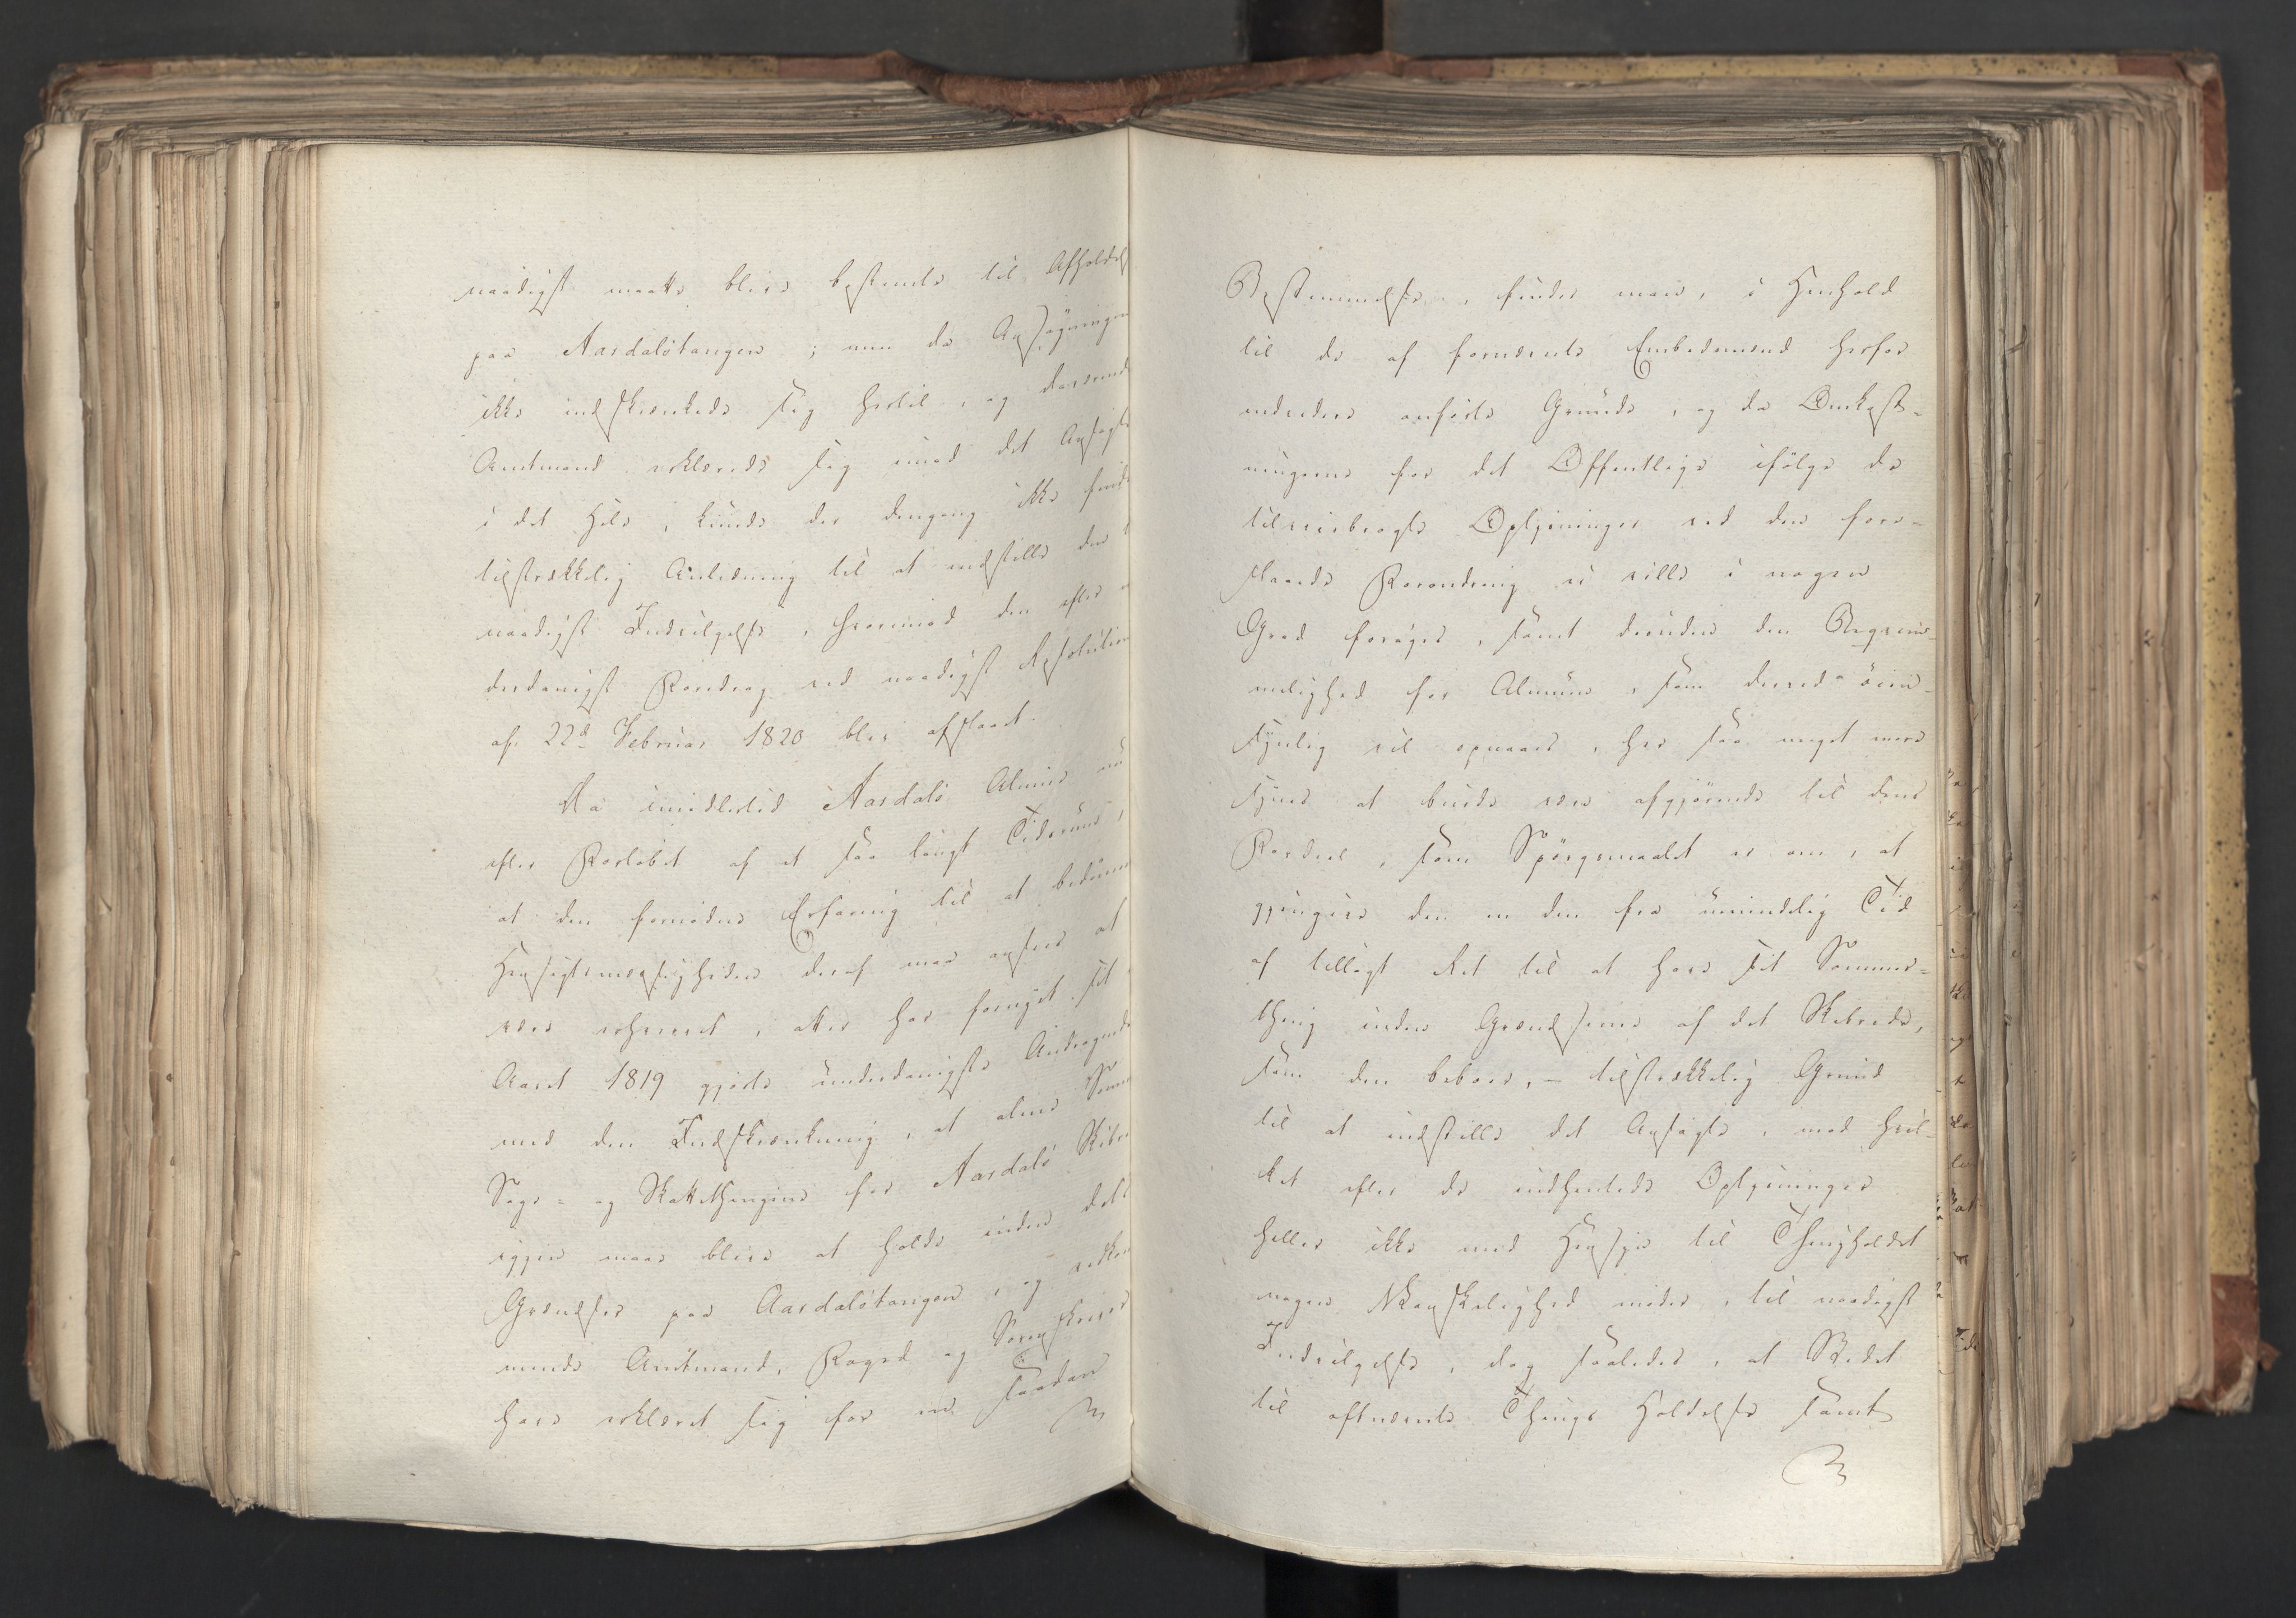 naadigst maatte blive bestemte til Afholdels
paa Aardalstangen; men da Ansøgningen
ikke indskrænkede sig hertil, og daværende
Amtmand erklærede sig imod det Ansøgte
i det Hele, kunde der dengang ikke finde
tilstrækkelig Anledning til at indstille den
naadigst Indvilgelse, hvorimod den efter
derdanigst Foredrag ved naadigst Resolution
af 22d Februar 1820 blev afslaaet.
Da imidlertid Aardals Almue nu
efter Forløbet af et saa langt Tidsrum,
at den fornødne Erfaring til at bedømme
Hensigtsmæssigheden deraf maa ansees at
være erhvervet, atter har fornyet sit i
Aaret 1819 gjorte underdanigste Andragende
med den Indskrænkning, at alene Som
Sage- og Skattethingene for Aardals Skibre
igjen maae blive at holde inden dets
Grændser paa Aardalstangen, og vedkom
mende Amtmand, Foged og Sorenskriver
have erklæret sig for en saadan
Bestemmelse, finder man, i Henhold
til de af fornævnte Embedsmænd herfor
anførte Grunde, og da Omkost-
ningerne for det Offentlige ifølge de
tilveiebragte Oplysninger ved den fore-
slaaede Forandring ei ville i nogen
Grad forøges, samt desuden den Beqvem-
melighed for Almuen, som derved øien-
synlig vil opnaaes, her saa meget mere
synes at burde være afgjørende til dens
Fordeel, som Spørgsmaalet er om, at
gjengive den en den fra umindelig Tid
af tillagt Ret til at have sit Sommer-
thing inden Grændserne af det Skibrede,
som den beboer, – tilstrækkelig Grund
til at indstille det Ansøgte, mod hvil-
ket efter de indhentede Oplysninger
heller ikke med Hensyn til Thingholdet
nogen Vanskelighed møder, til naadigst
Indvilgelse, dog saaledes, at Stedet
til oftnævnte Things Holdelse samt